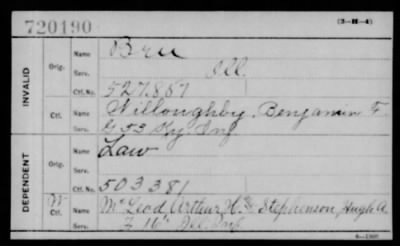 720190
(3-H-4)
INVALID
Orig.
Name Bru
Serv. Ill.
Ctf. No. 527.857
Ctf.
Name Willoughby, Benjamin F.
Serv. G 53 Ky Inf
DEPENDENT
Orig.
Name Law
Serv.
Ctf. No. 503381
W Ctf.
Name McLeod, Arthur H. Stephenson, Hugh A.
Serv. Ill. Inf.